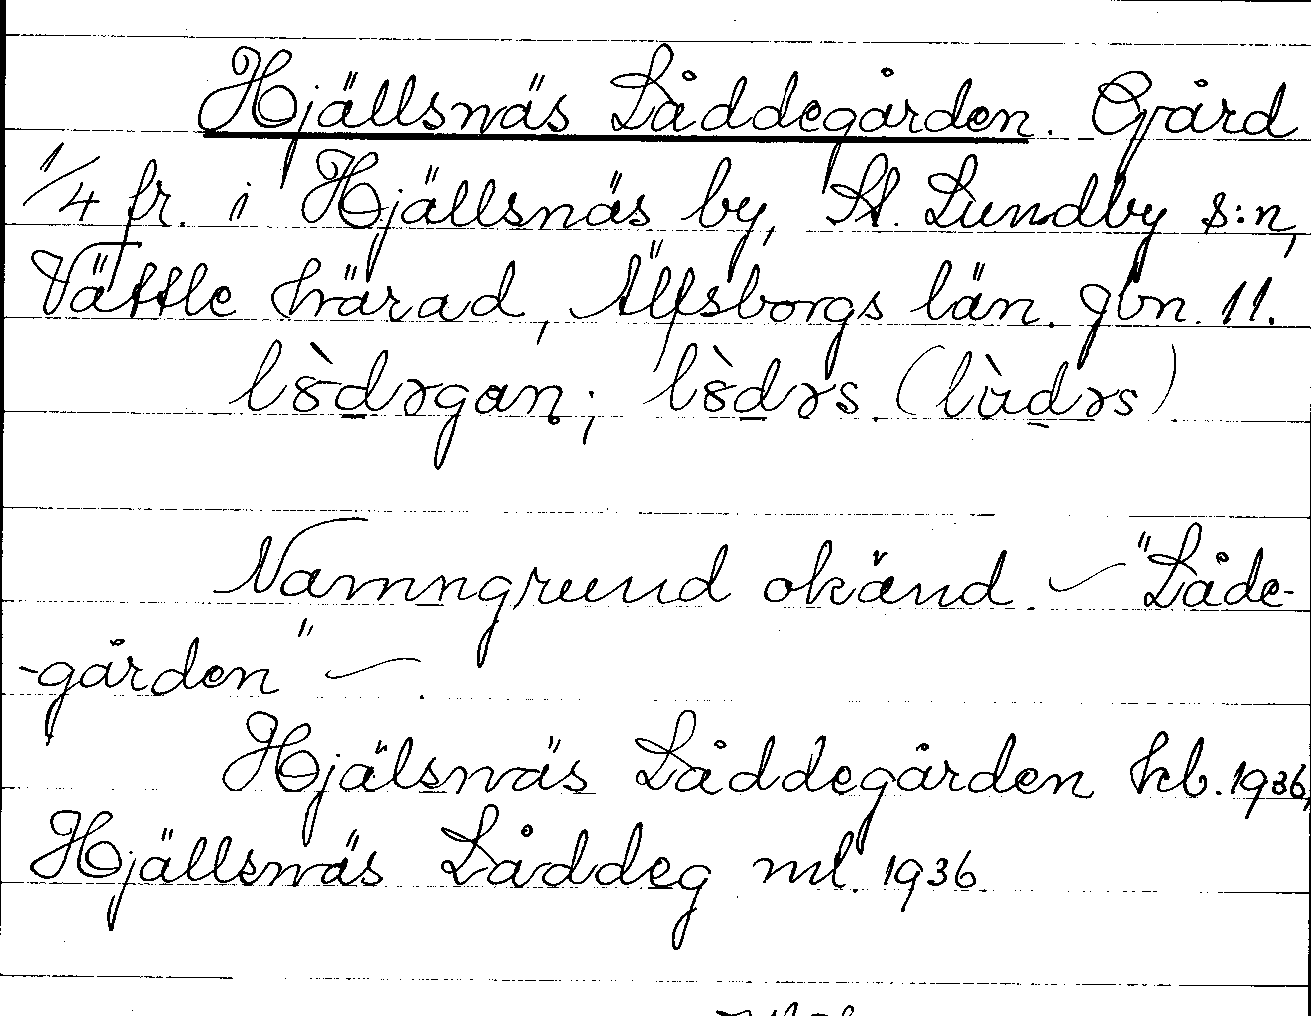 Hjällsnäs Låddegården. Gård
1/4 fr. i Hjällsnäs by, St. Lundby s:n,
Vättle härad, Älfsborgs län. gbn. 11.
Namngrund okänd. — "Låde-
-gården" —.
Hjälsnäs Låddegården kb. 1936,
Hjällsnäs Låddeg ml. 1936.